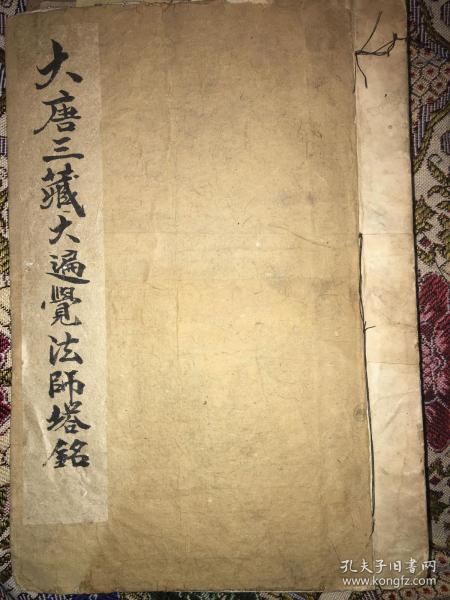 大唐三藏大遍覺法師塔銘
孔夫子旧书网
www.kongfz.com